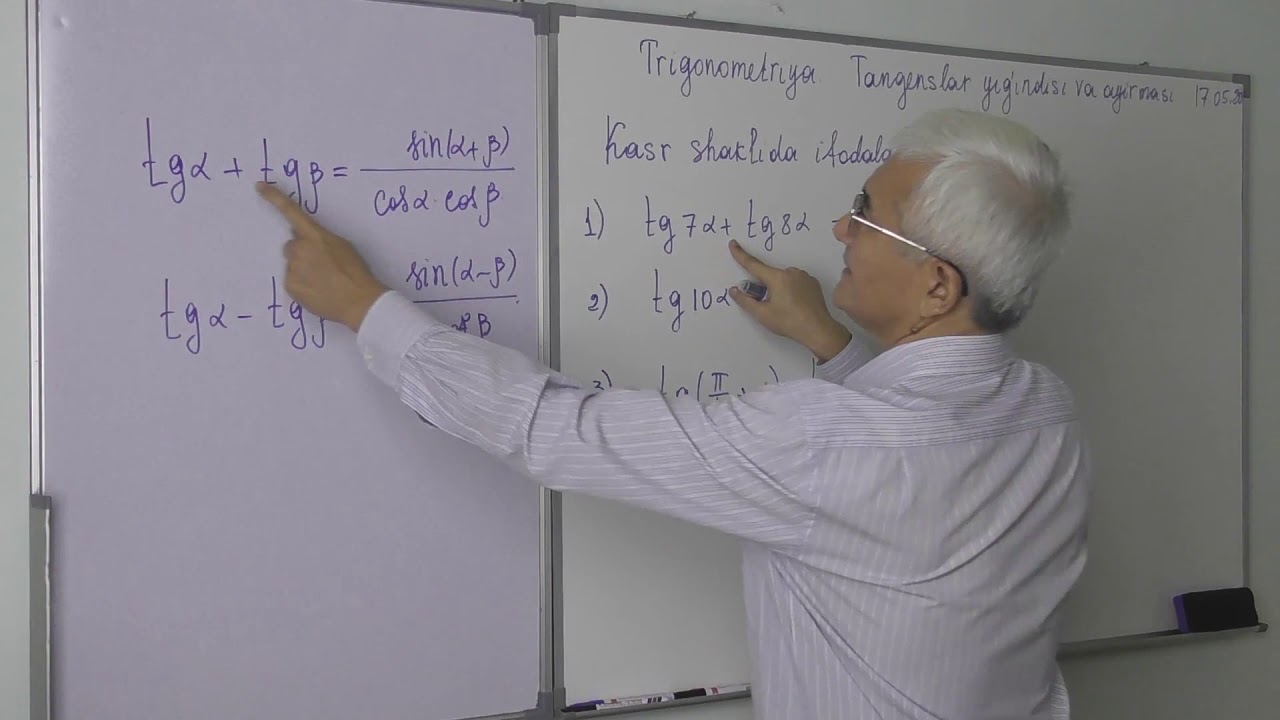 tgα + tgβ = sin(α+β) / cosα · cosβ
tgα − tgβ sin(α−β)
Trigonometriya Tangenslar yig'indisi va ayirmasi 17.05.20
Kasr shaklida ifodala
1) tg7α + tg8α
2) tg10α
3)